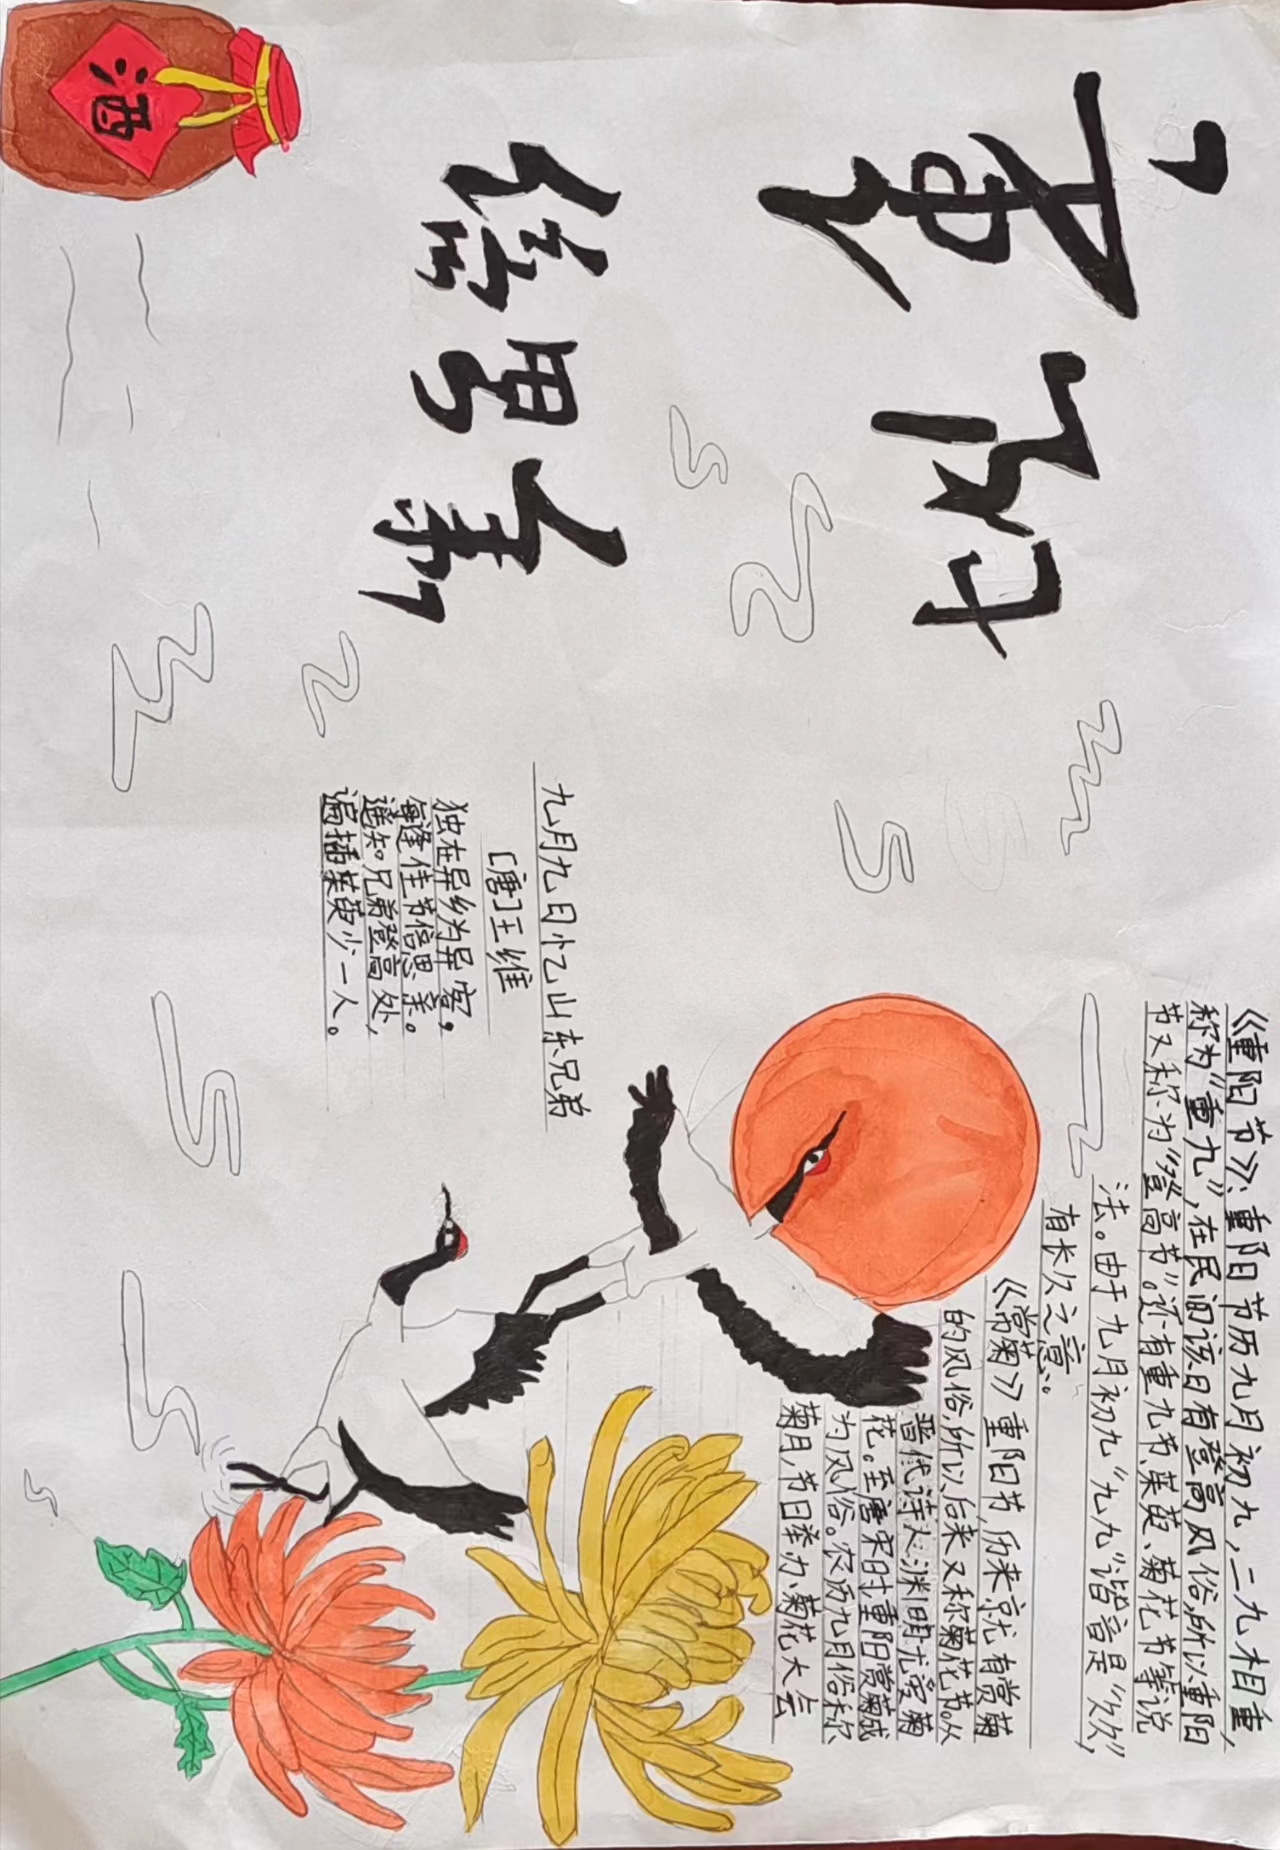 重阳
酒
《重阳节》:重阳节历九月初九,二九相重,
称为“重九”,在民间该日有登高风俗,所以重阳
节又称为“登高节”。还有重九节、茱萸、菊花节等说
法。由于九月初九“九九”谐音是“久久”,
有长久之意。
《赏菊》重阳日节,历来就有赏菊
的风俗,所以后来又称菊花节。从
晋代诗人渊明尤爱菊
花。至唐宋时重阳赏菊成
为风俗。农历九月俗称
菊月,节日举办菊花大会
九月九日忆山东兄弟
[唐]王维
独在异乡为异客,
每逢佳节倍思亲。
遥知兄弟登高处,
遍插茱萸少一人。